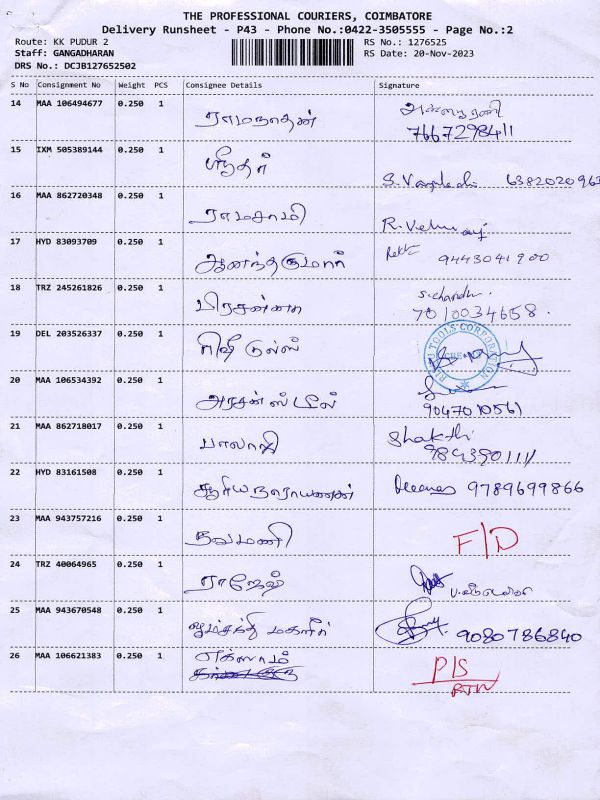 THE PROFESSIONAL COURIERS, COIMBATORE
Delivery Runsheet - P43 - Phone No.:0422-3505555 - Page No.:2
Route: KK PUDUR 2 RS No.: 1276525
Staff: GANGADHARAN RS Date: 20-Nov-2023
DRS No.: DCJB127652502
S No Consignment No Weight PCS Consignee Details Signature
14 MAA 106494677 0.250 1 ராமநாதன்
7667298411
15 IXM 505389144 0.250 1 ஸ்ரீதர்
S. 6382020963
16 MAA 862720348 0.250 1 ராமசாமி
R.
17 HYD 83093709 0.250 1 ஆனந்தகுமார் 9443041900
18 TRZ 245261826 0.250 1 பிரசன்னா
7010034658.
19 DEL 203526337 0.250 1 ரிஷி டூல்ஸ்
TOOLS CORPORATION
20 MAA 106534392 0.250 1 அரசன் ஸ்டீல்
9047010561
21 MAA 862718017 0.250 1 பாலாஜி Shakthi
22 HYD 83161508 0.250 1 சூரியநாராயணன் 9789699866
23 MAA 943757216 0.250 1 நவமணி F/D
24 TRZ 40064965 0.250 1 ராஜேஷ்
25 MAA 943670548 0.250 1 மகளிர் 9080786840
26 MAA 106621383 0.250 1 P/S
RTN